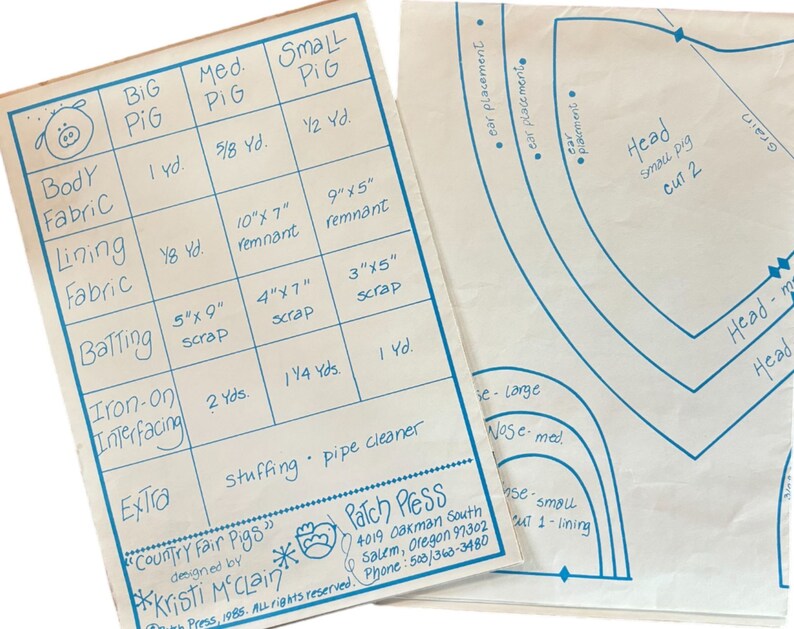 BiG PiG
Med. PiG
SmaLL PiG
BoDY FaBRiC
1 yd.
5/8 yd.
1/2 yd.
Lining FaBRiC
1/8 yd.
10"x 7" remnant
9"x 5" remnant
BaTTing
5"x 9" scrap
4"x 7" scrap
3"x5" scrap
IRon-on InTeRfacing
2 yds.
1 1/4 yds.
1 yd.
ExTRa
stuffing • pipe cleaner
"CounTRY FaiR PiGs"
designed by
KRisTi McCLain
PaTCH PRess
4019 Oakman South
Salem, Oregon 97302
Phone: 503/363-3480
Patch Press, 1985. All rights reserved.
ear placement
ear placement
ear placement
Head
small pig
cut 2
Grain
Head - m
Head
se - large
Nose - med.
ose - small
cut 1 - lining